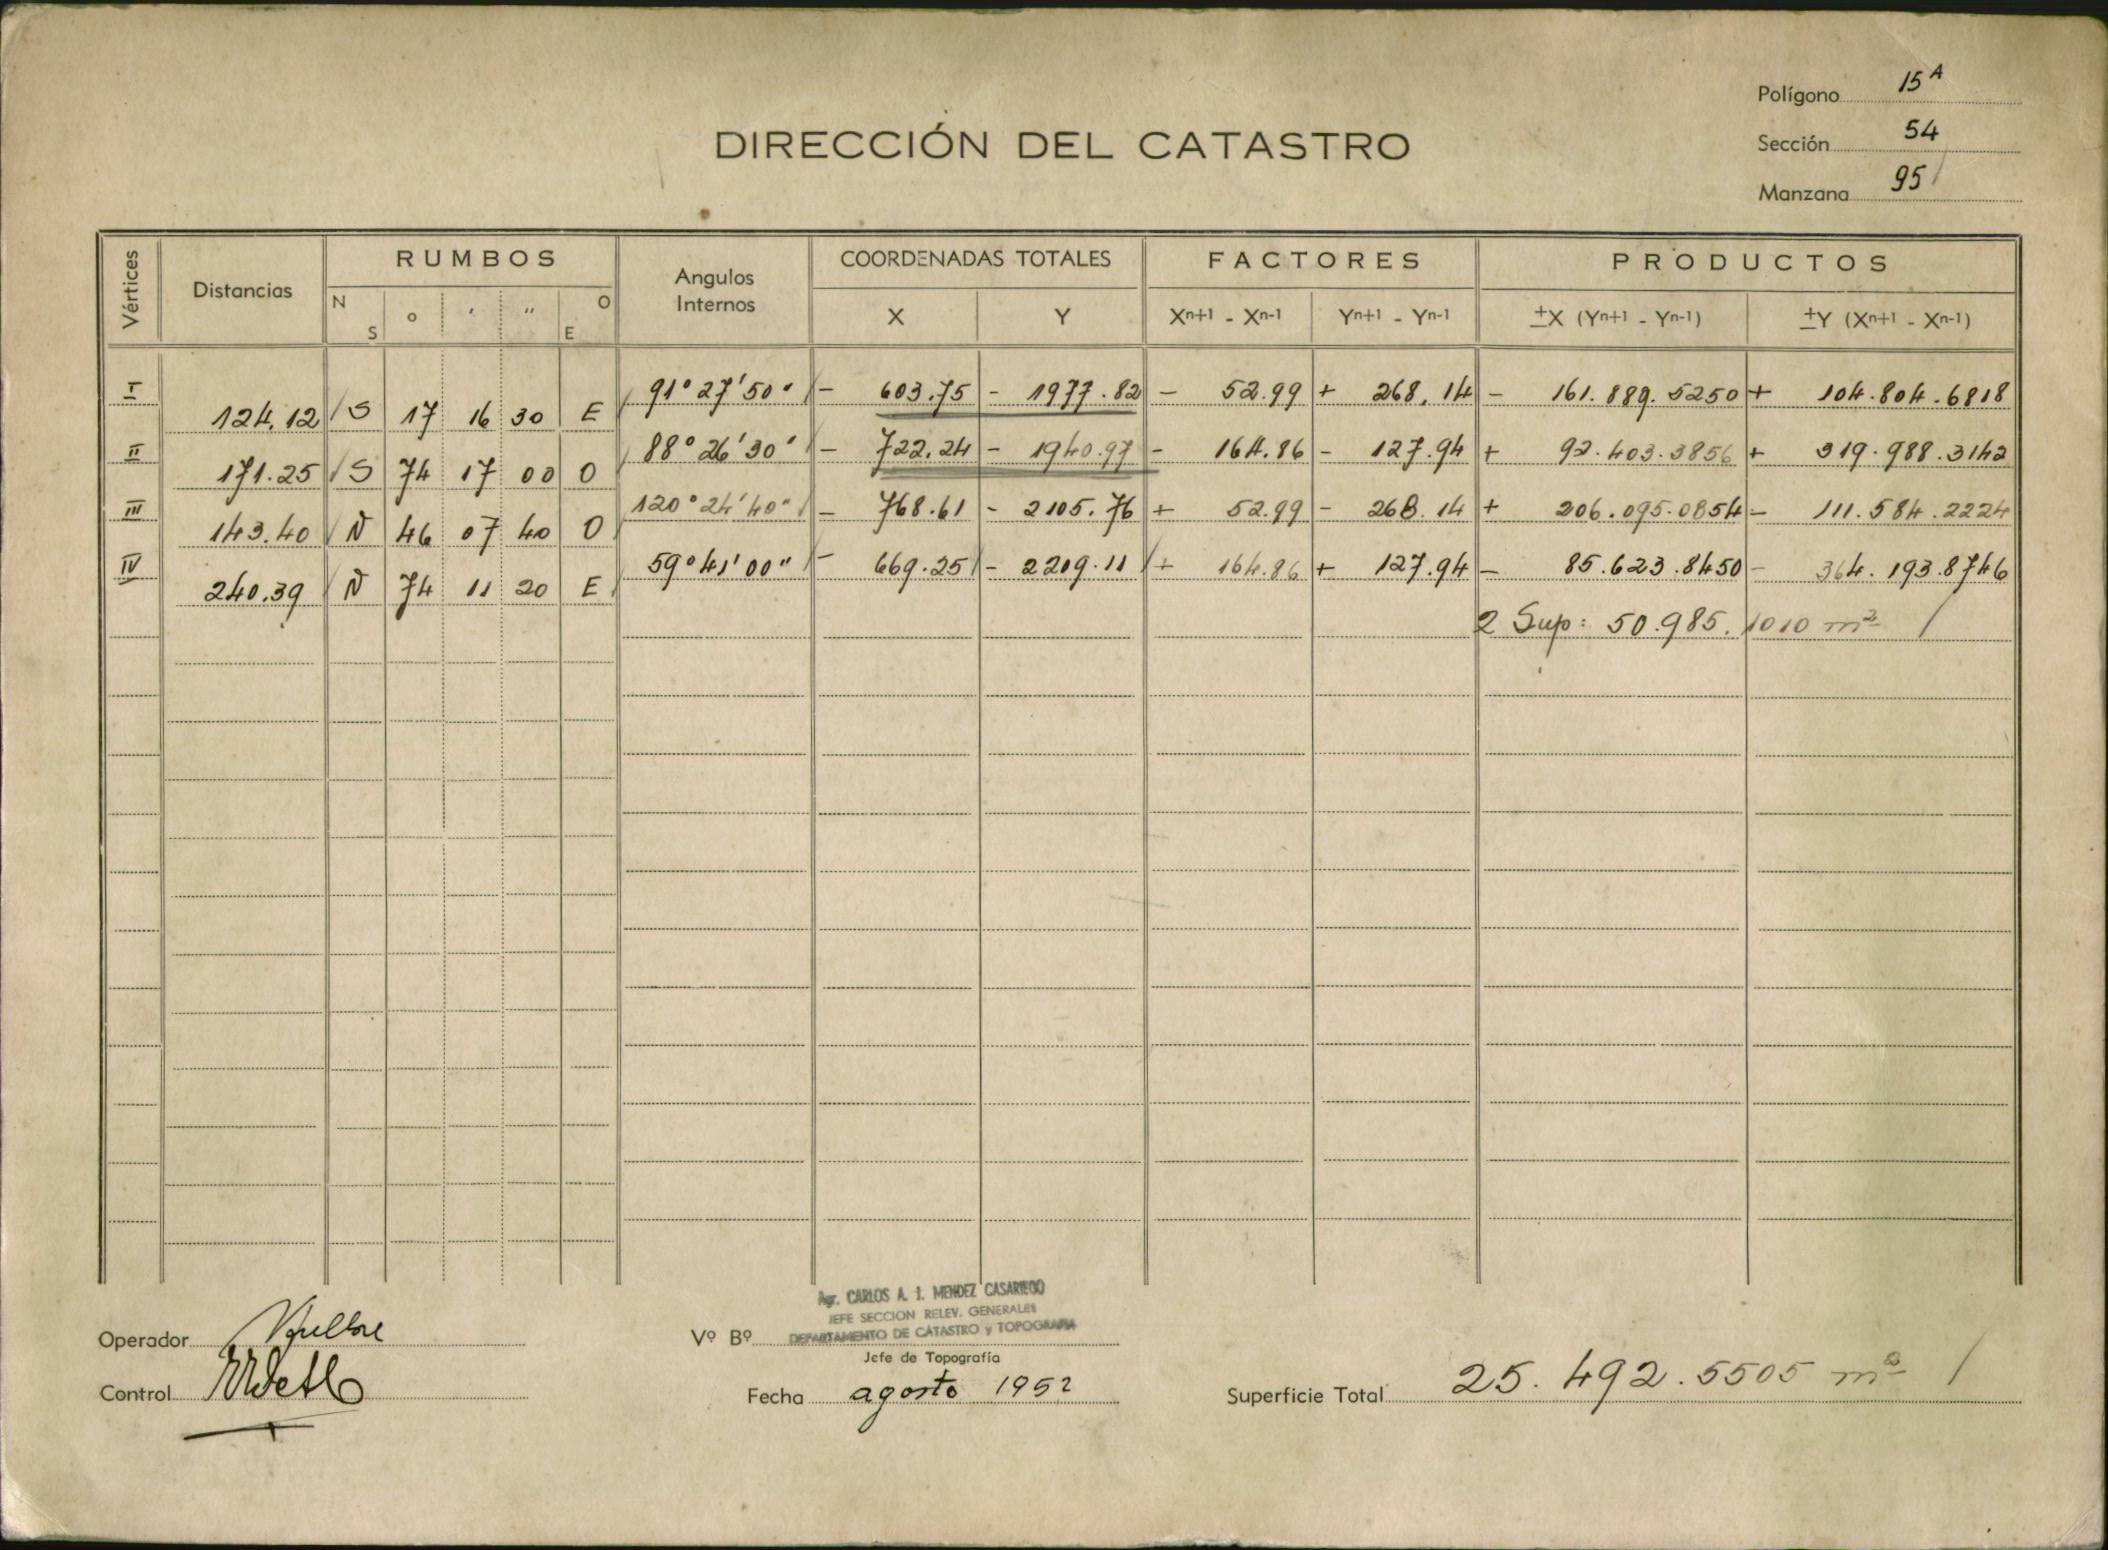 Polígono 15 A
DIRECCIÓN DEL CATASTRO
Sección 54
Manzana 95
Vértices Distancias RUMBOS Angulos Internos COORDENADAS TOTALES FACTORES PRODUCTOS
N S ° ' " O E X Y Xn+1 - Xn-1 Yn+1 - Yn-1 ±X (Yn+1 - Yn-1) ±Y (Xn+1 - Xn-1)
I 91° 27' 50" - 603.75 - 1977.82 - 52.99 + 268.14 - 161.889.5250 + 104.804.6818
124.12 S 17 16 30 E
II 88° 26' 30" - 722.24 - 1940.97 - 164.86 - 127.94 + 92.403.3856 + 319.988.3142
171.25 S 74 17 00 O
III 120° 24' 40" - 768.61 - 2105.76 + 52.99 - 268.14 + 206.095.0854 - 111.584.2224
143.40 N 46 07 40 O
IV 59° 41' 00" - 669.25 - 2209.11 + 164.86 + 127.94 - 85.623.8450 - 364.193.8746
240.39 N 74 11 20 E
2 Sup: 50.985.1010 m²
Agr. CARLOS A. J. MENDEZ CASARIEGO
JEFE SECCION RELEV. GENERALES
DEPARTAMENTO DE CATASTRO y TOPOGRAFIA
Operador
Vº Bº
Jefe de Topografía
Control
Fecha agosto 1952
Superficie Total 25.492.5505 m²